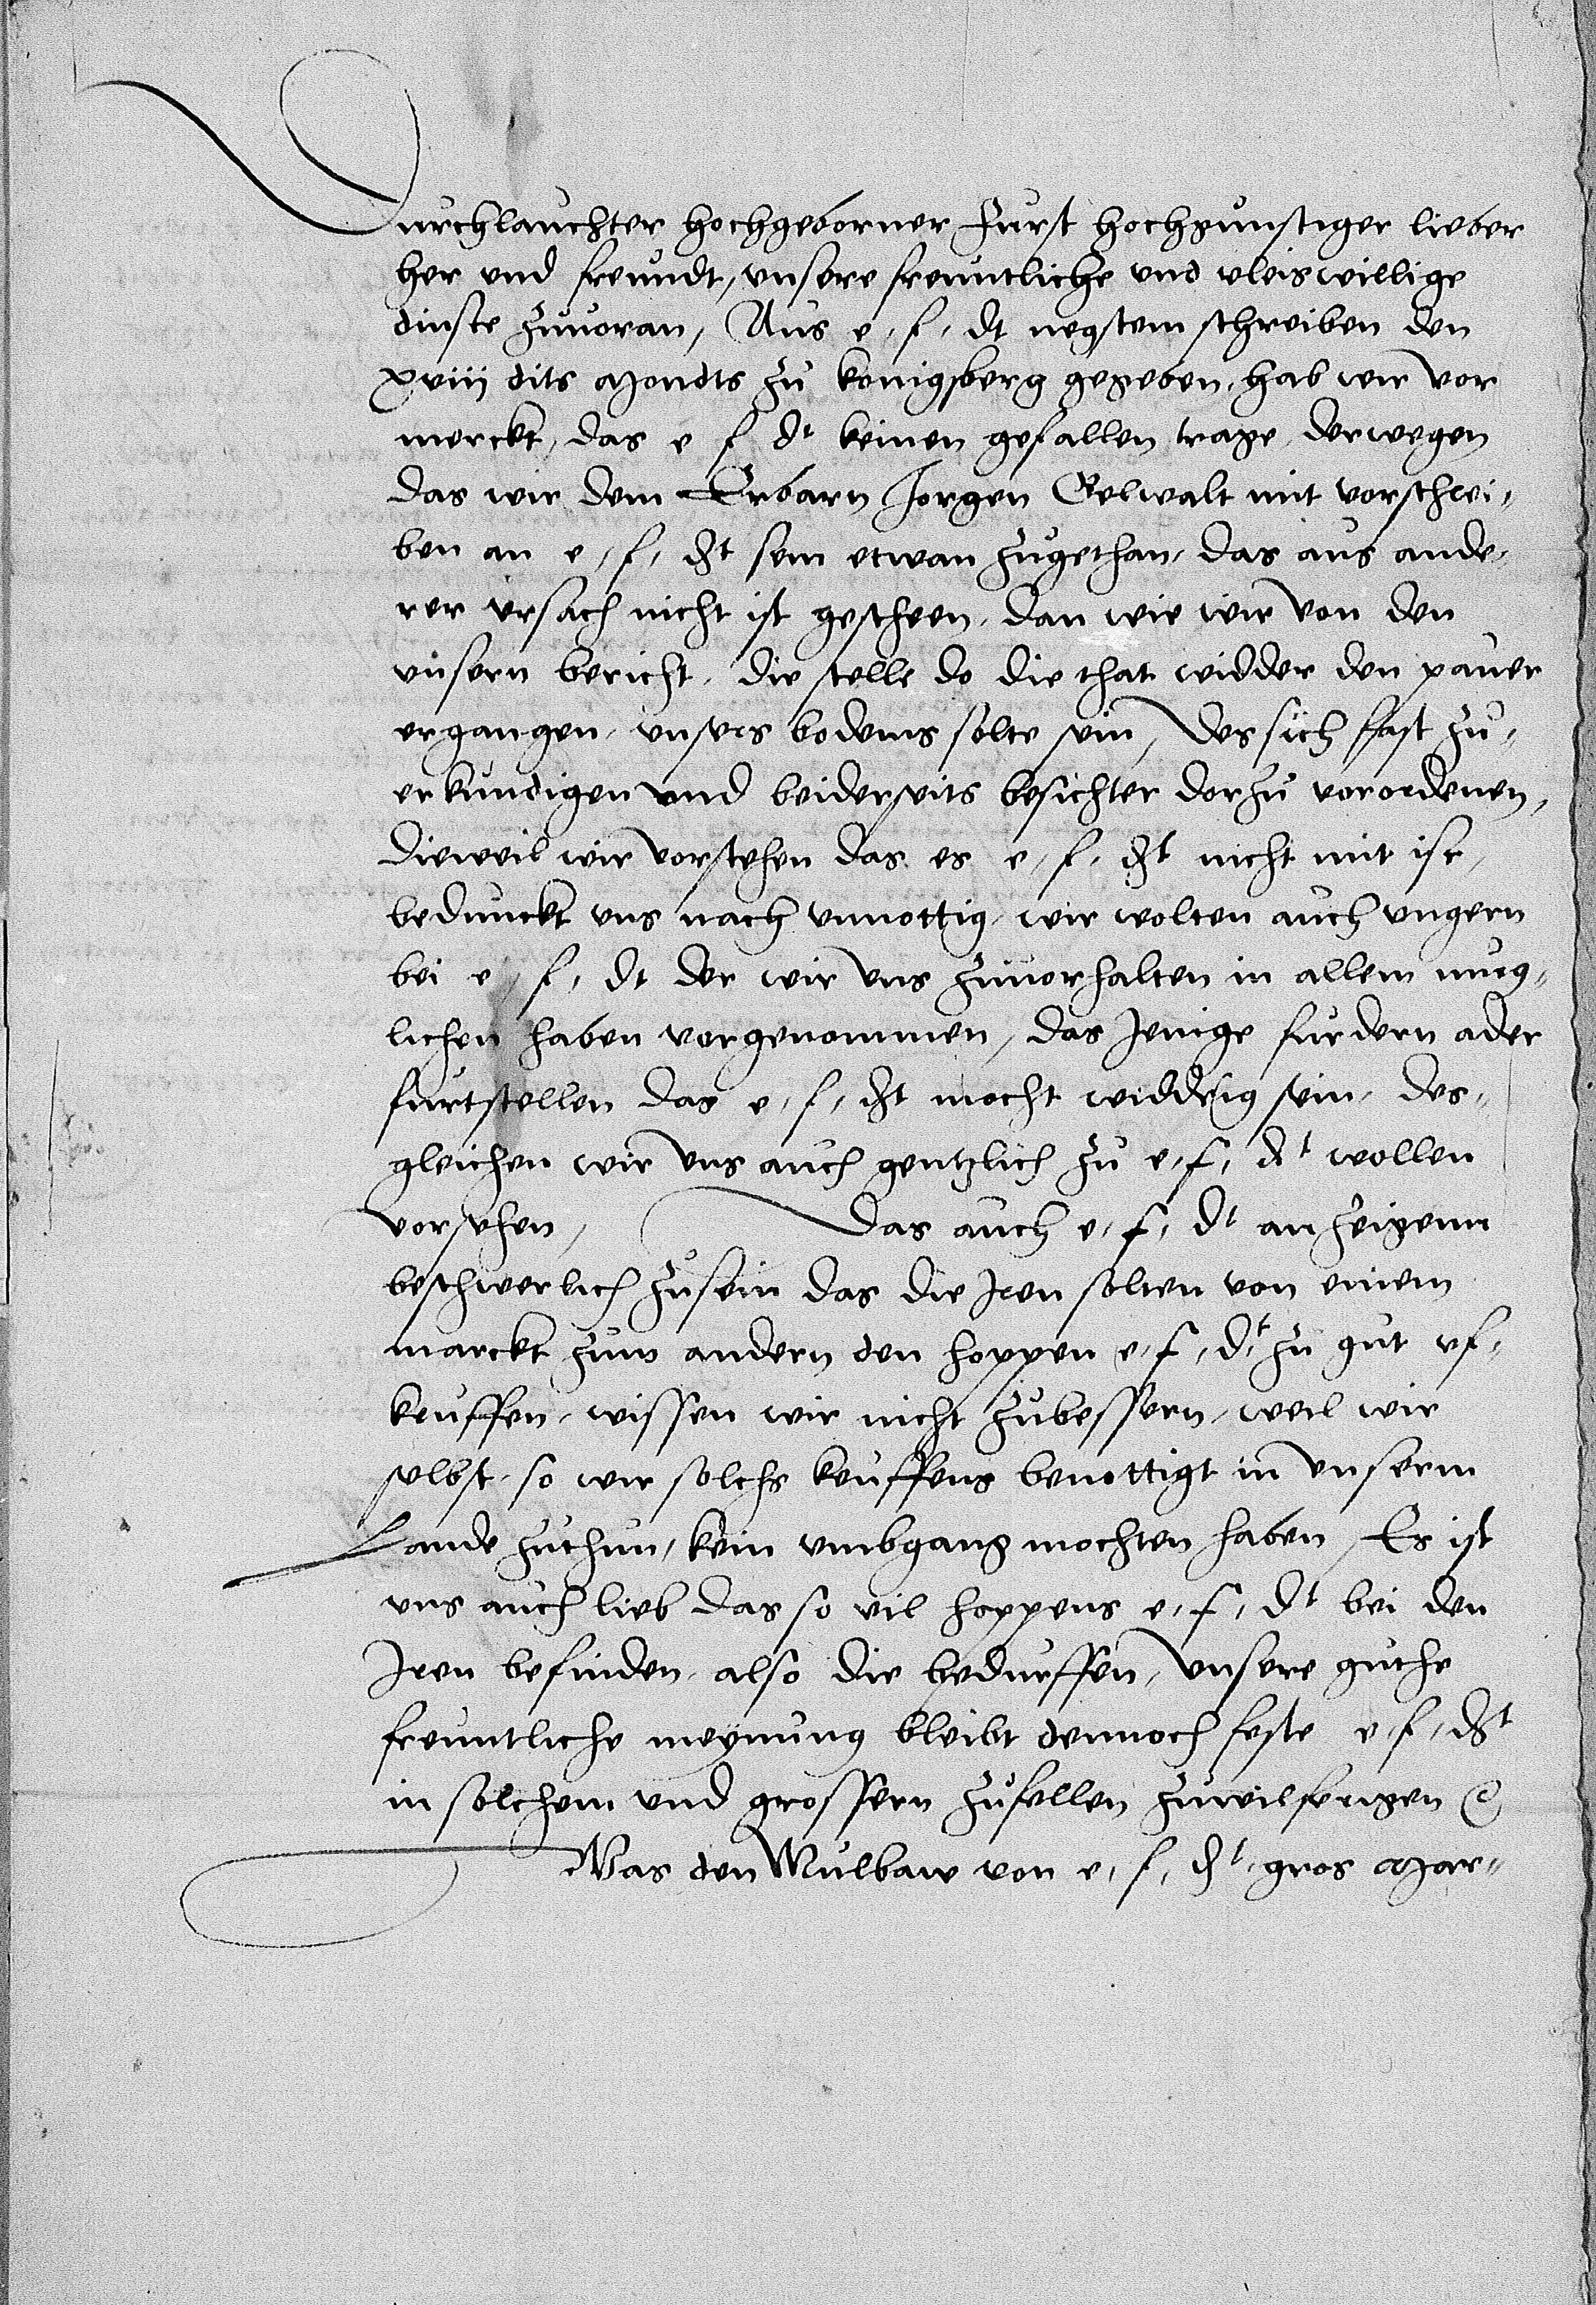 Durchlauchter hochgeborner Furst hochgunstiger lieber
her vnd freundt, vnsere freuntliche vnd vleiswillige
dinste zuuoran, Aus e, f, dt negstem schreiben den
xviij dits Mondts zu konigsberg gegeben, hab wir vor
merckt, das e f dt keinen gefallen trage, derwegen
das wir dem Erbarn Jorgen Gelwalt mit vorschrei,
ben an e, f, dt sein etwan zugethan, das aus ande,
rer vrsach nicht ist gescheen, dan wie wir von den
vnsern bericht, die stelle do die that widder den pauer
ergangen, vnsers bodems solte sein, des sich fast zu,
erkundigen vnd beiderseits besichter dorzu vorordenen,
Dieweil wir vorstehen das es e, f, dt nicht mit ist,
bedunckt vns nach vnnottig, wir wolten auch vngern
bei e, f, dt der wir vns zuuorhalten in allem mueg,
lichen haben vorgenommen, das Jenige furdern ader
furtstellen das e, f, dt mocht widdrig sein, des,
gleichen wir vns auch gentzlich zu e, f, dt wollen
vorsehen, Das auch e, f, dt anzeigenn
beschwerlich zusein das die Iren solten von einem
marckt zum andern den hoppen e, f, dt zu gut vf,
keuffen, wissen wir nicht zubessern, weil wir
selbst, so wir solchs keuffens benottigt in vnserm
Lande zuthun, kein vmbgang mochten haben, Es ist
vns auch lieb das so vil hoppens e, f, dt bei den
Iren befinden, also die bedurffen, vnsere guthe
freuntliche meynung bleibt dennoch feste e, f, dt
in solchem vnd grossern zufellen zuwilferigen etc
Was den Mulbaw von e, f, dt, gros Mar,